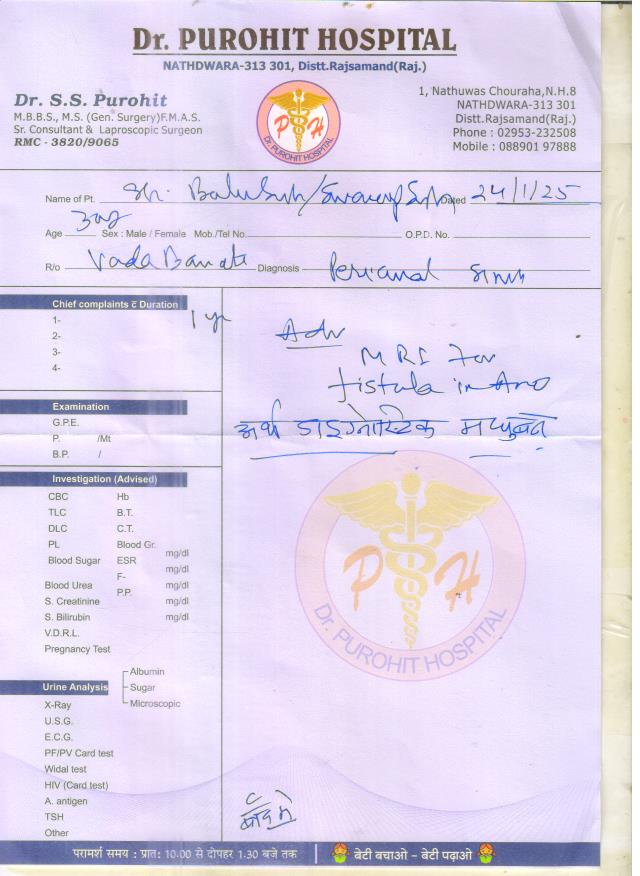 Dr. PUROHIT HOSPITAL
NATHDWARA-313 301, Distt.Rajsamand(Raj.)
Dr. S.S. Purohit
M.B.B.S., M.S. (Gen. Surgery)F.M.A.S.
Sr. Consultant & Laproscopic Surgeon
RMC - 3820/9065
P H
Dr. PUROHIT HOSPITAL
1, Nathuwas Chouraha,N.H.8
NATHDWARA-313 301
Distt.Rajsamand(Raj.)
Phone : 02953-232508
Mobile : 088901 97888
Name of Pt. Sh. Dated 24/1/25
Age Sex : Male / Female Mob./Tel No. O.P.D. No.
R/o Diagnosis Perianal
Chief complaints c̄ Duration
1- 1 yr
2-
3-
4-
Adv
MRI For
fistula in Ano
अर्थ डाइग्नोस्टिक
Examination
G.P.E.
P. /Mt
B.P. /
Investigation (Advised)
CBC Hb
TLC B.T.
DLC C.T.
PL Blood Gr.
Blood Sugar ESR mg/dl
F- mg/dl
Blood Urea P.P. mg/dl
S. Creatinine mg/dl
S. Bilirubin mg/dl
V.D.R.L.
Pregnancy Test
Urine Analysis
Albumin
Sugar
Microscopic
X-Ray
U.S.G.
E.C.G.
PF/PV Card test
Widal test
HIV (Card test)
A. antigen
TSH
Other
P H
Dr. PUROHIT HOSPITAL
परामर्श समय : प्रातः 10.00 से दोपहर 1.30 बजे तक
बेटी बचाओ - बेटी पढ़ाओ